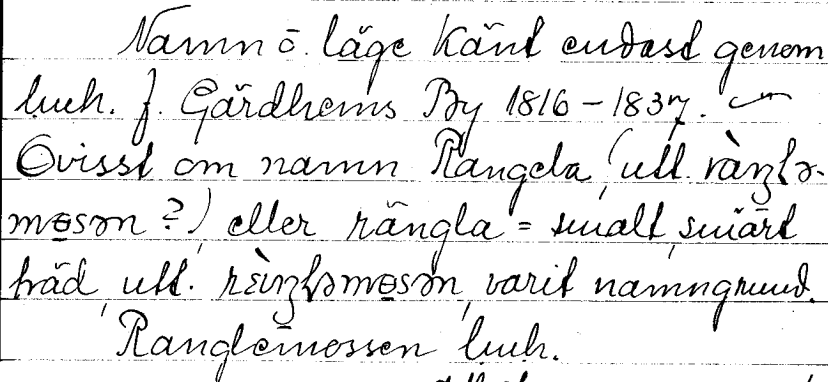 Namn o. läge känt endast genom
luch. f. Gärdhems By 1816 – 1837.
Ovisst om namn Rangela (utt.
?) eller rängla = smalt, smärt
träd, utt. varit namngrund.
Ranglemossen luch.